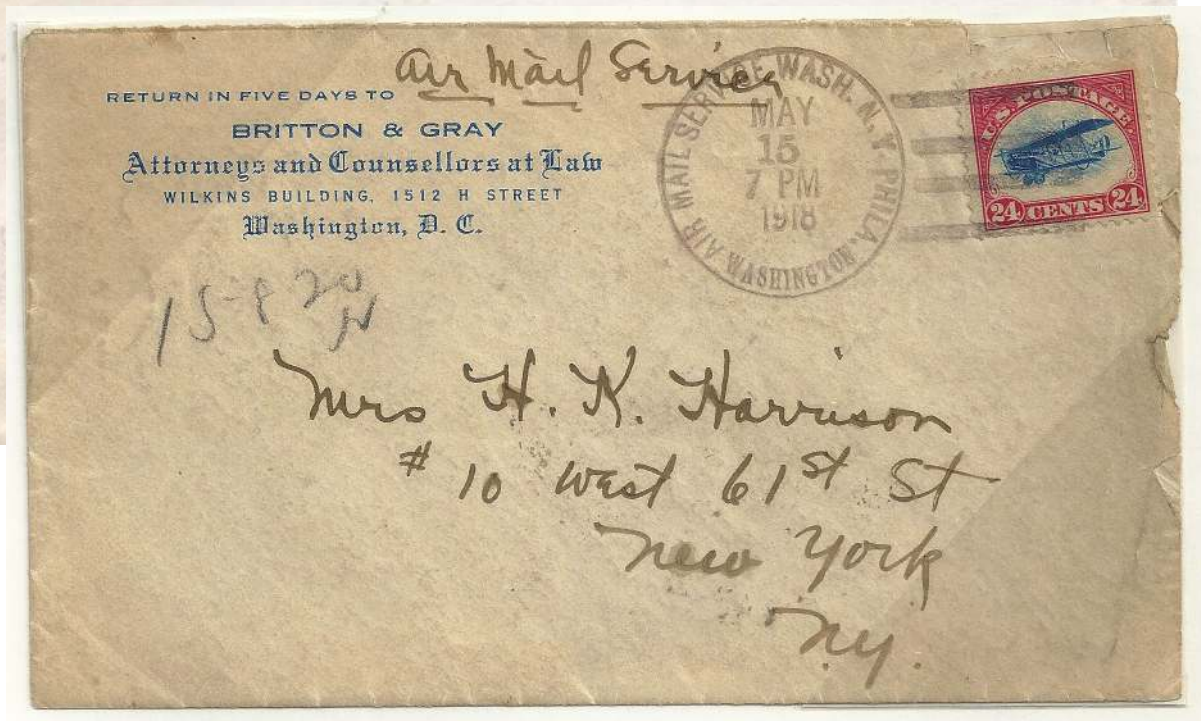 Air Mail Service
RETURN IN FIVE DAYS TO
BRITTON & GRAY
Attorneys and Counsellors at Law
WILKINS BUILDING, 1512 H STREET
Washington, D. C.
AIR MAIL SERVICE WASH. N.Y. PHILA.
MAY
15
7 PM
1918
WASHINGTON
U.S. POSTAGE
24 CENTS 24
15
Mrs H. K. Harrison
# 10 West 61st St
New York
N.Y.